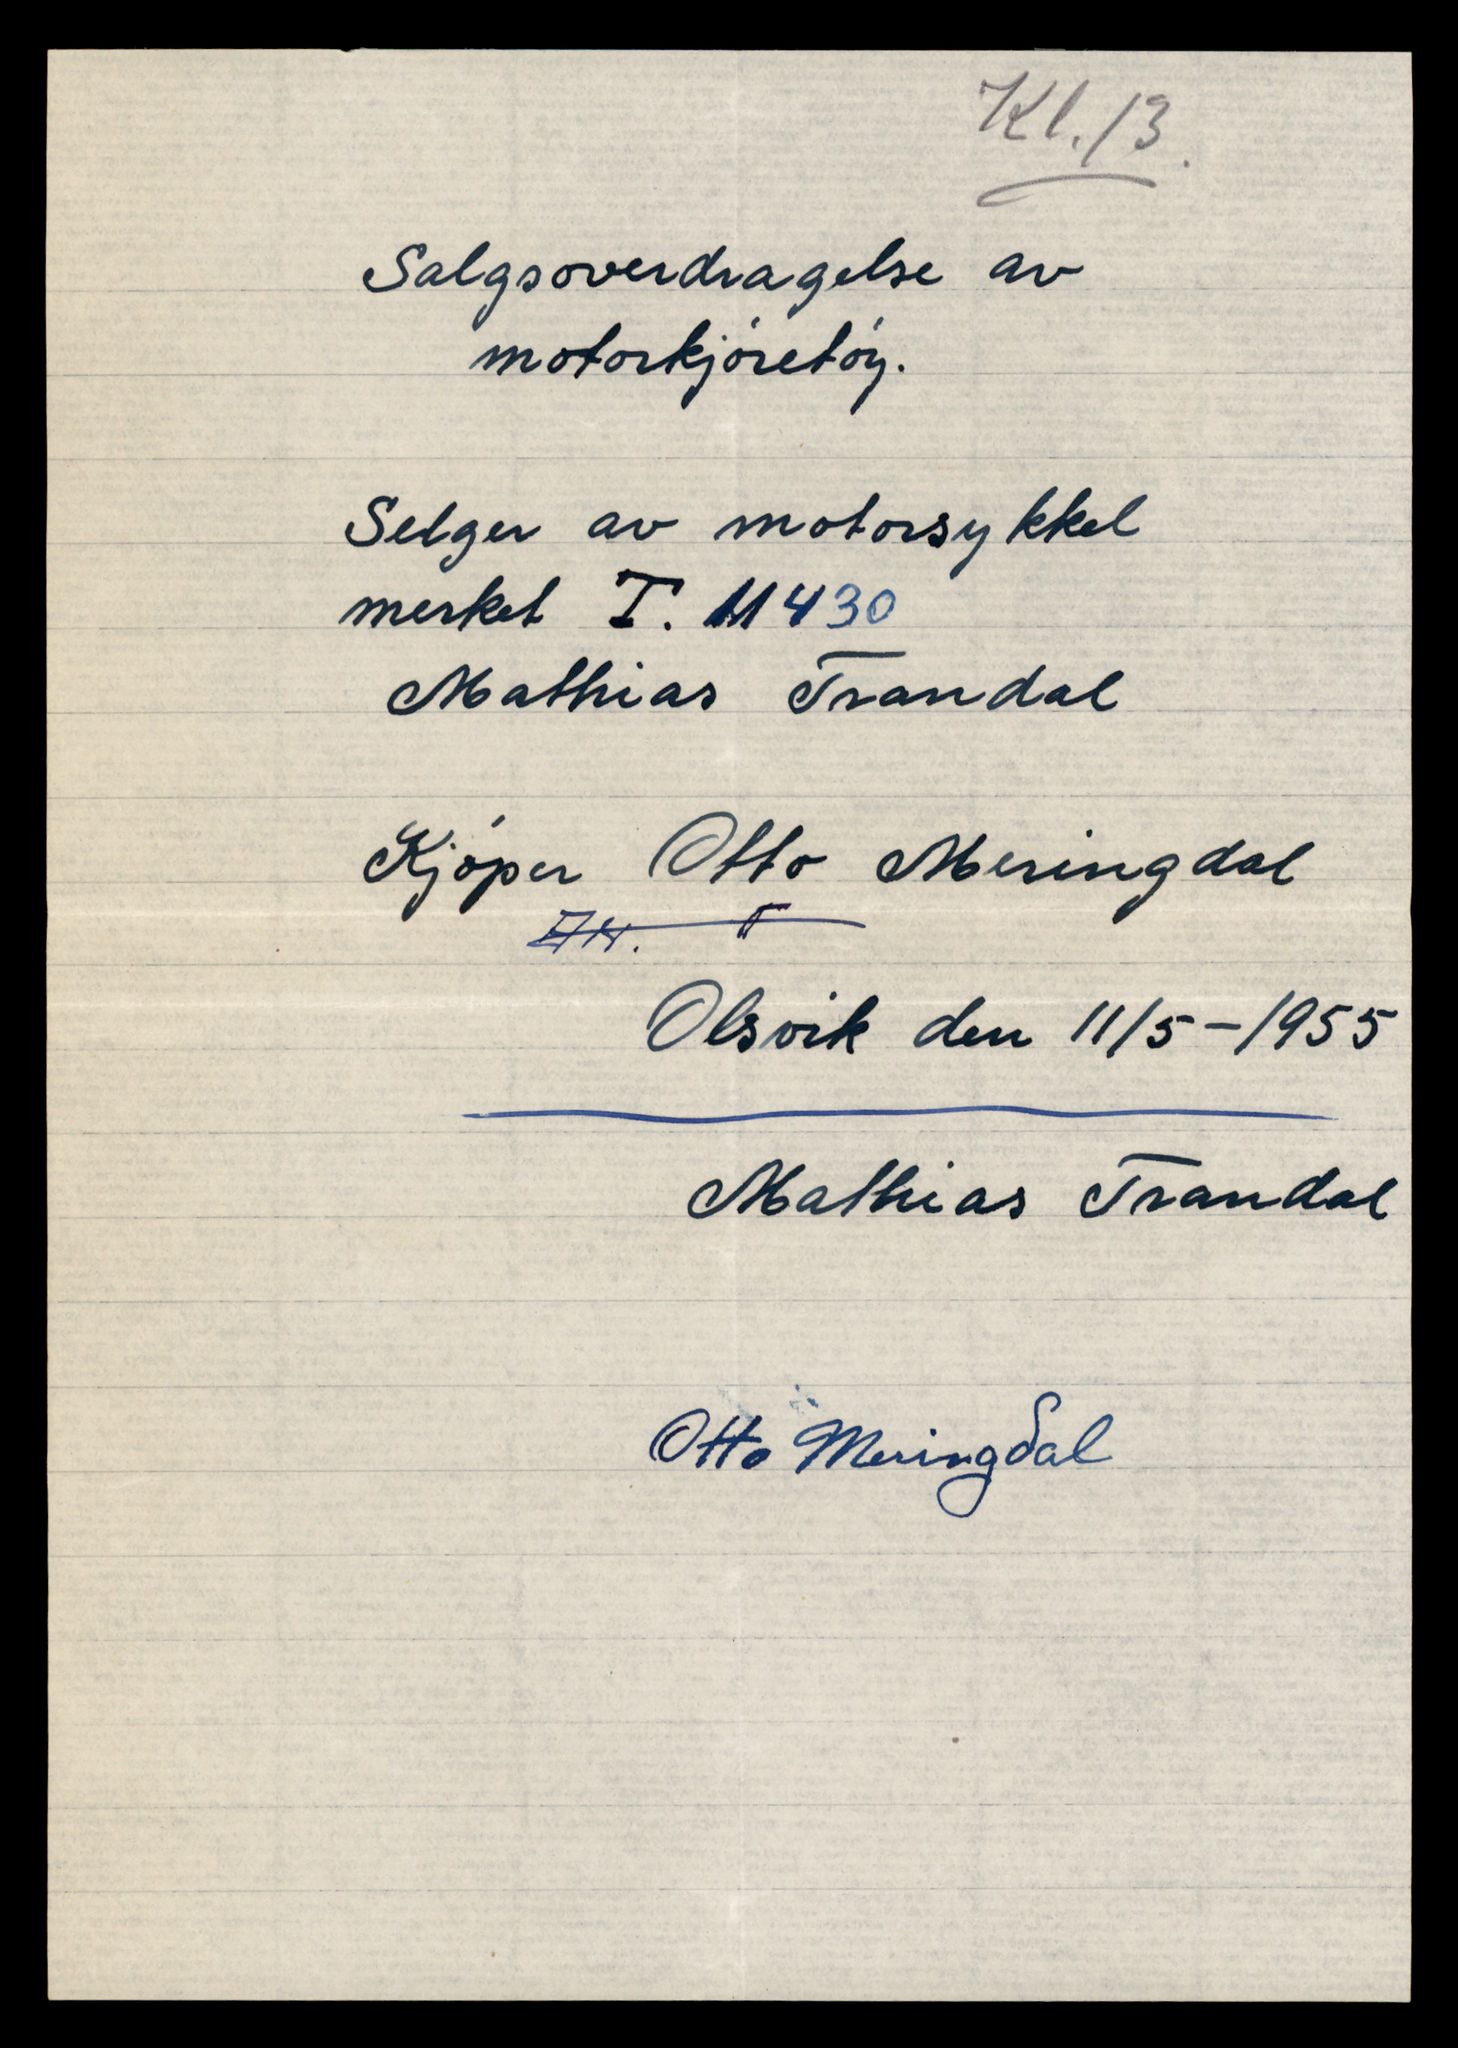 Kl. 13.
Salgsoverdragelse av
motorkjóretóy.
Selger av motorsykkel
merket T. 11430
Mathias Trandal
Kjóper Otto Meringdal
Olsvik den 11/5-1955
Mathias Trandal
Otto Meringdal